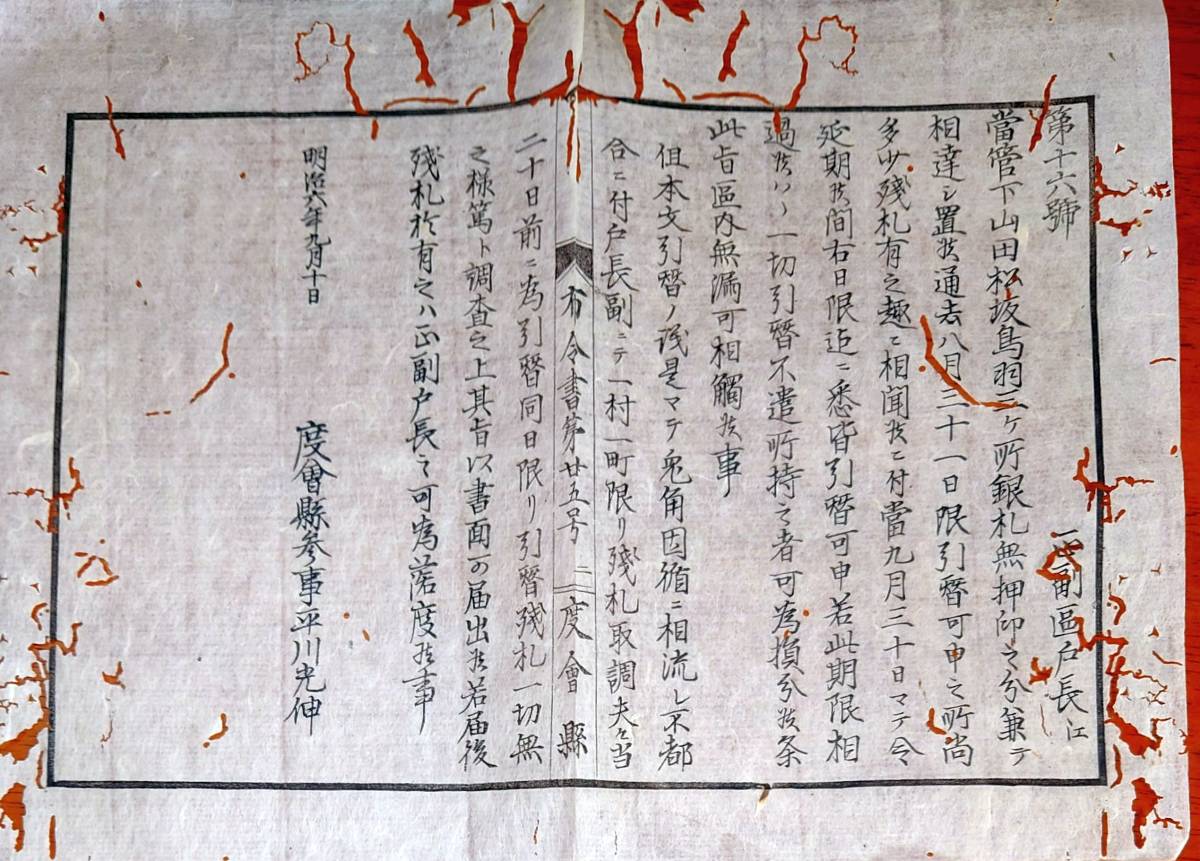 第十六號
正副區戸長江
當管下山田松坂鳥羽三ヶ所銀札無押印之分兼テ
相達シ置候通去八月三十一日限引替可申之所尚
多少残札有之趣ニ相聞候ニ付當九月三十日マテ令
延期候間右日限迄ニ悉皆引替可申若此期限相
過候ハヽ一切引替不遣所持之者可為損分候条
此旨區内無漏可相觸候事
但本文引替ノ儀是マテ兎角因循ニ相流レ不都
合ニ付戸長副ニテ一村一町限リ残札取調夫々当
布令書第廿五号 度會縣
二十日前ニ為引替同日限リ引替残札一切無
之様篤ト調査之上其旨以書面可届出候若届後
残札於有之ハ正副戸長之可為落度候事
明治六年九月十日
度會縣参事平川光伸